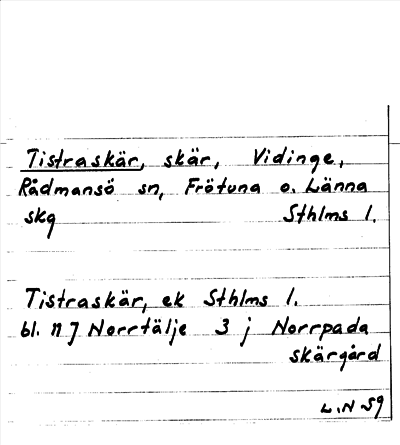 Tistraskär, skär, Vidinge,
Rådmansö sn, Frötuna o. Länna
skg Sthlms l.
Tistraskär, ek Sthlms l.
bl. 117 Norrtälje 3 j Norrpada
skärgård
L.N 59